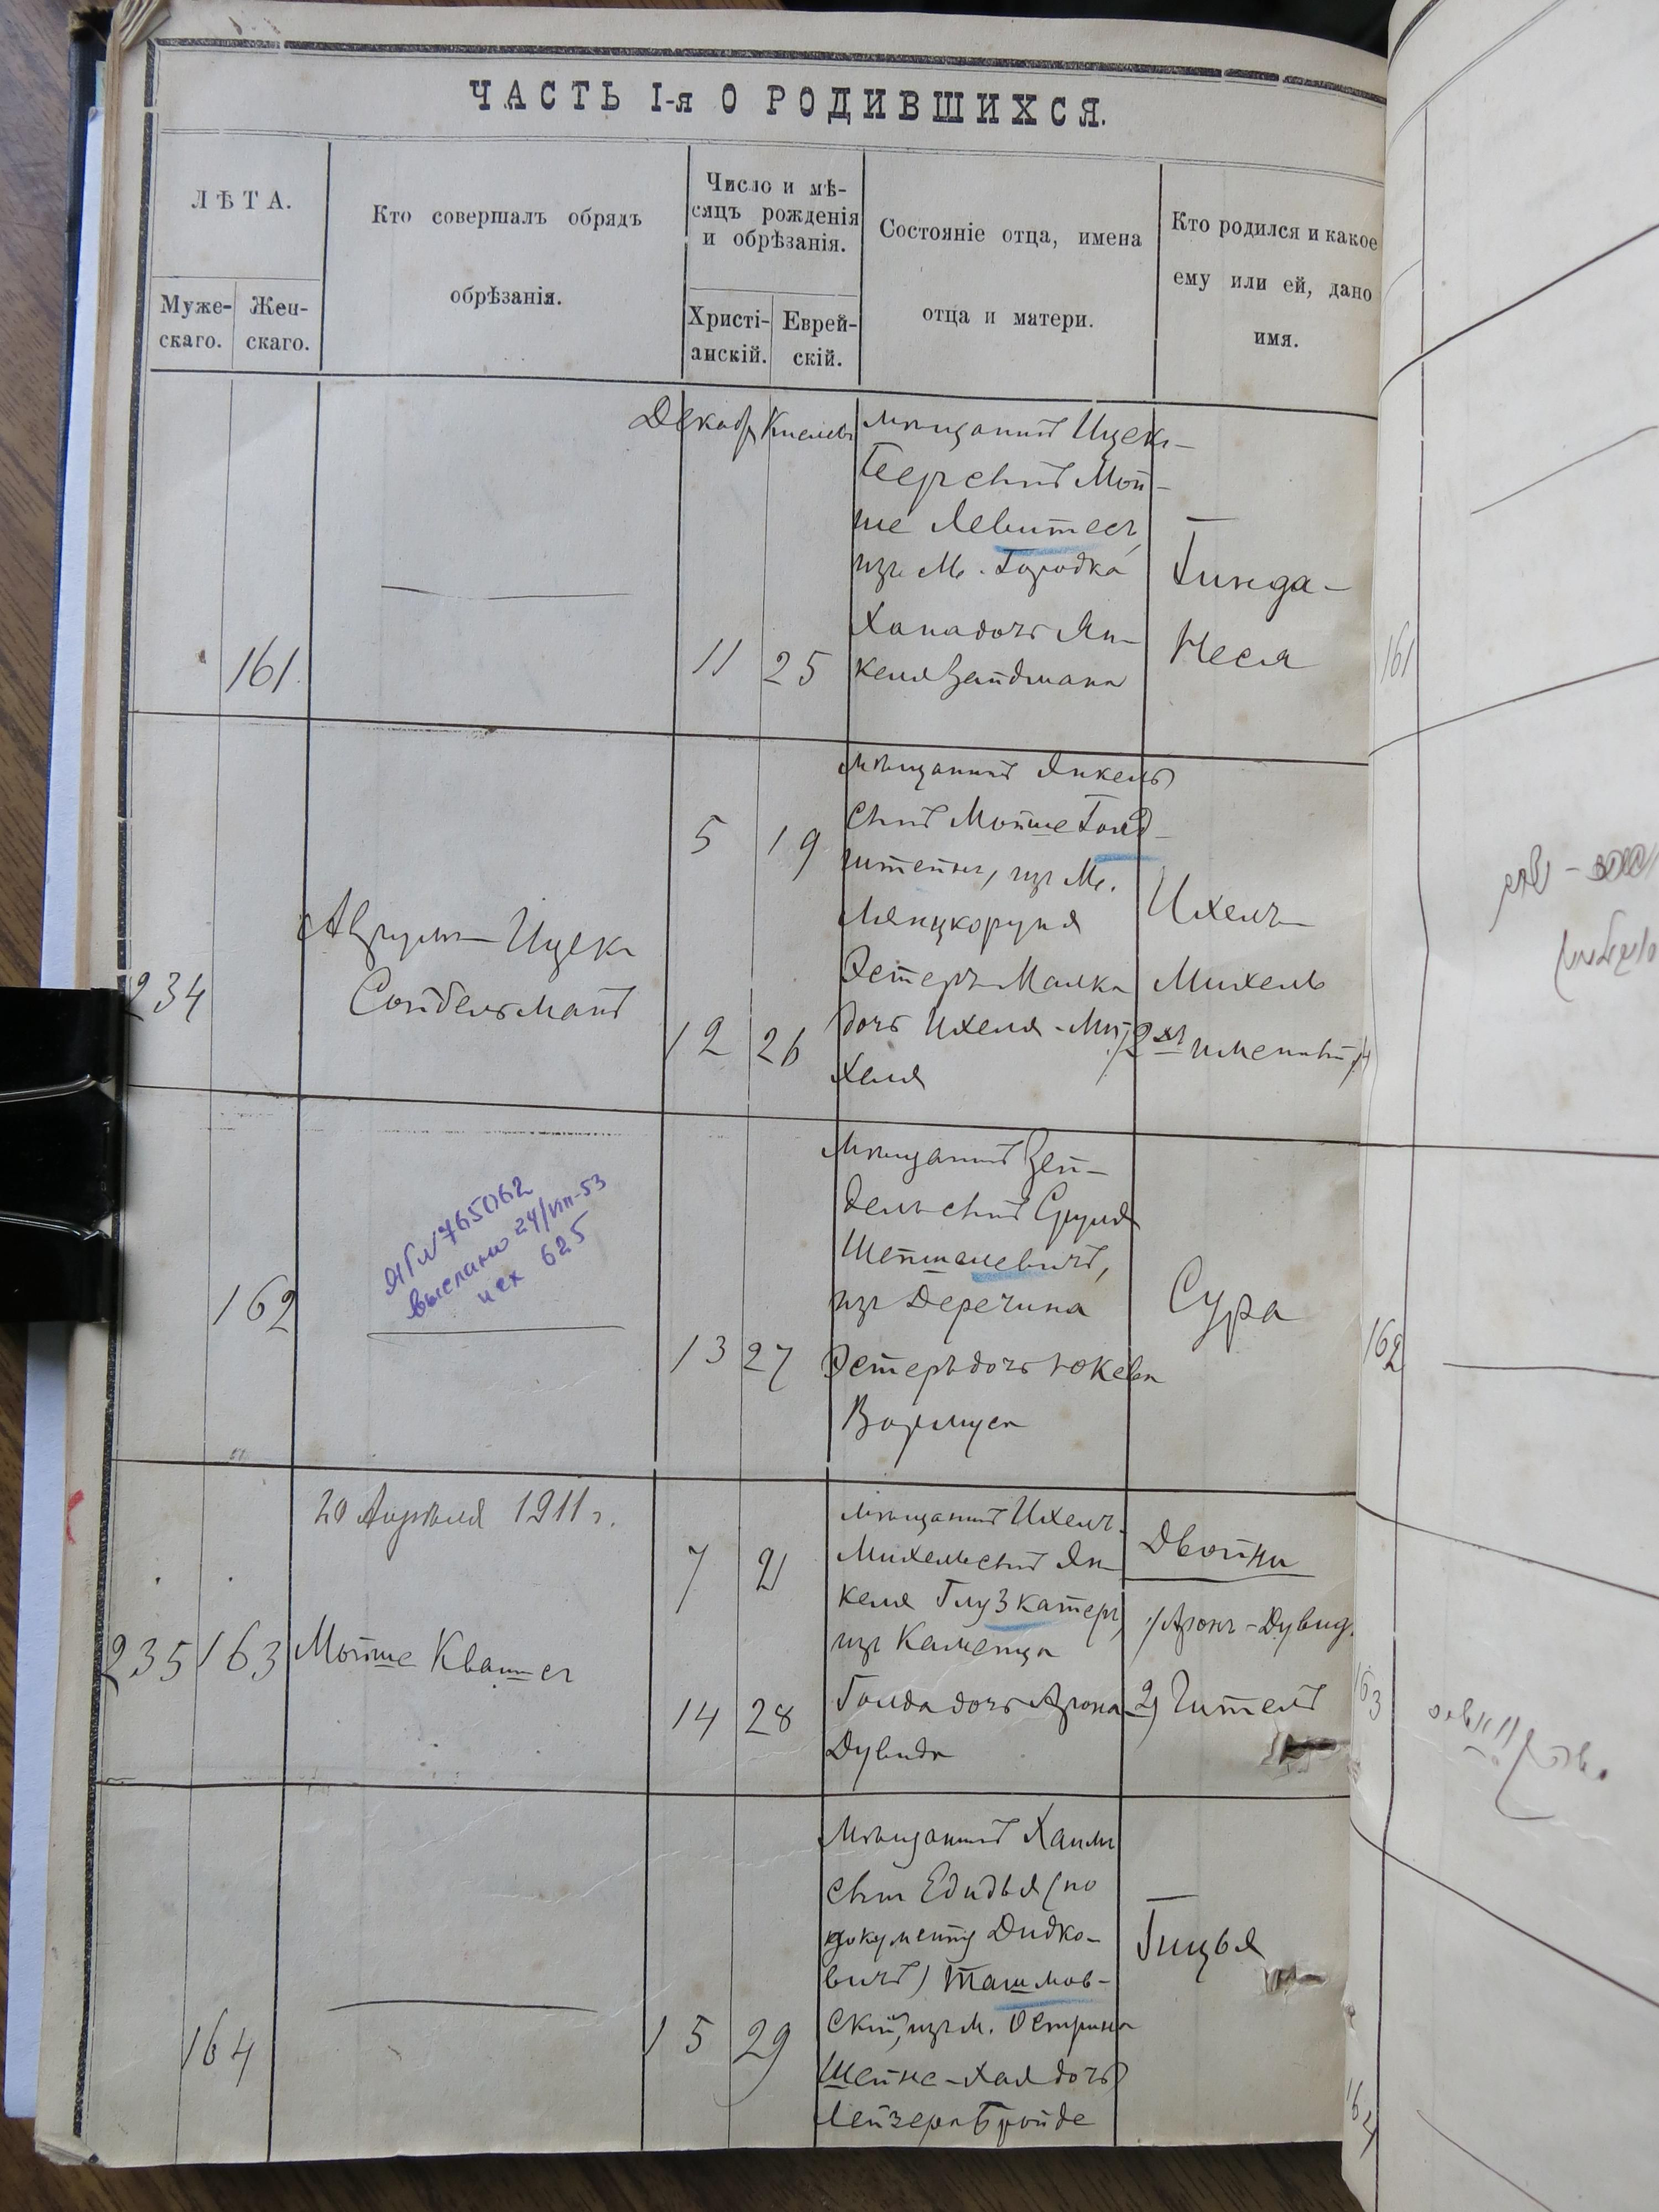 ЧАСТЬ I-я О РОДИВШИХСЯ.
ЛѢТА.
Муже-
скаго.
Жен-
скаго.
Кто совершалъ обрядъ
обрѣзанія.
Число и мѣ-
сяцъ рожденія
и обрѣзанія.
Христі-
анскій.
Еврей-
скій.
Состояніе отца, имена
отца и матери.
Кто родился и какое
ему или ей, дано
имя.
161
Декабр
11
25
мѣщанинъ Ицекъ-
Беръ сынъ Мой-
ше Левитесъ,
изъ м. Городка
Хана дочь Ян-
келя Зейдмана
Гинда-
Неся
161
234
Аврумъ-Ицекъ
Сойбельманъ
5
19
12
26
мѣщанинъ Янкель
сынъ Мойше Голд-
штейнъ, изъ м.
Лянцкоруня
Эстеръ-Малка
дочь Ихеля-Ми-
хеля
Ихелъ-
Михель
/2хъ именный/
162
ЯГ № 765062
выслано 24/VIII-53
исх 625
13
27
мѣщанинъ Зей-
дель сынъ Сруля
Шепшелевичъ,
изъ Деречина
Эстеръ дочь Юкева
Вормуса
Сура
162
20 Апрѣля 1911 г.
235
163
Мойше Квашер
7
21
14
28
мѣщанинъ Ихелъ-
Михель сынъ Ян-
келя Глузкатеръ,
изъ Каменца
Голда дочь Арона
Дувида
Двойни
1/ Аронъ-Дувид.
2) Гитель
163
164
15
29
мѣщанинъ Хаимъ
сынъ Едидья (по
документу Дидко-
вичъ) Ташлов-
скій, изъ м. Острина
Шейне-Хая дочь
Лейзера Бройде
Гицья
164